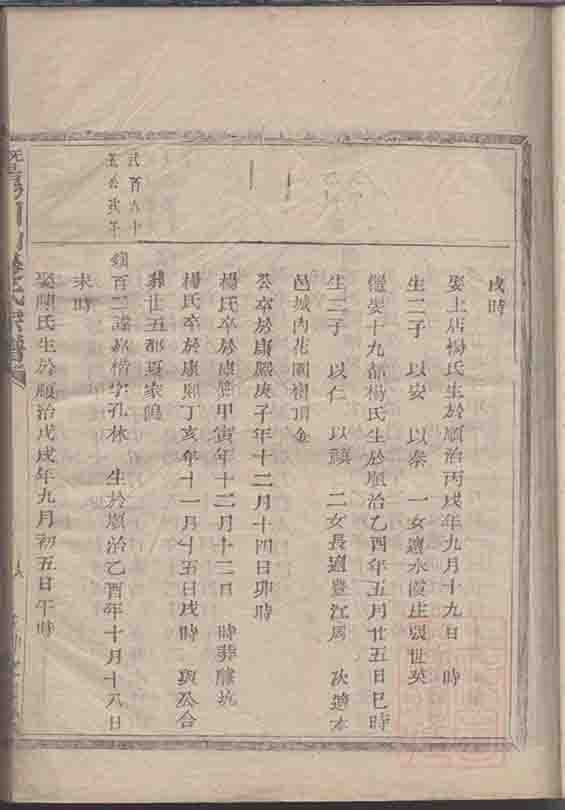 戌時
娶上店楊氏生於順治丙戌年九月十九日 時
生二子 以安 以泰 一女適永澄庄張世英
繼娶十九都楊氏生於順治乙酉年五月廿五日巳時
生二子 以仁 以 二女長適豐江周 次適本
邑城內花園樹頂金
公卒於康熙庚子年十二月十四日卯時
楊氏卒於康熙甲寅年十二月十二日 時葬 坑
楊氏卒於康熙丁亥年十一月十五日戌時 與公合
葬廿五都夏家塢
鎮百二諱 楷字孔林 生於順治乙酉年十月十八日
未時
娶陳氏生於順治戊戌年九月初五日午時
式百六十
氏宗譜